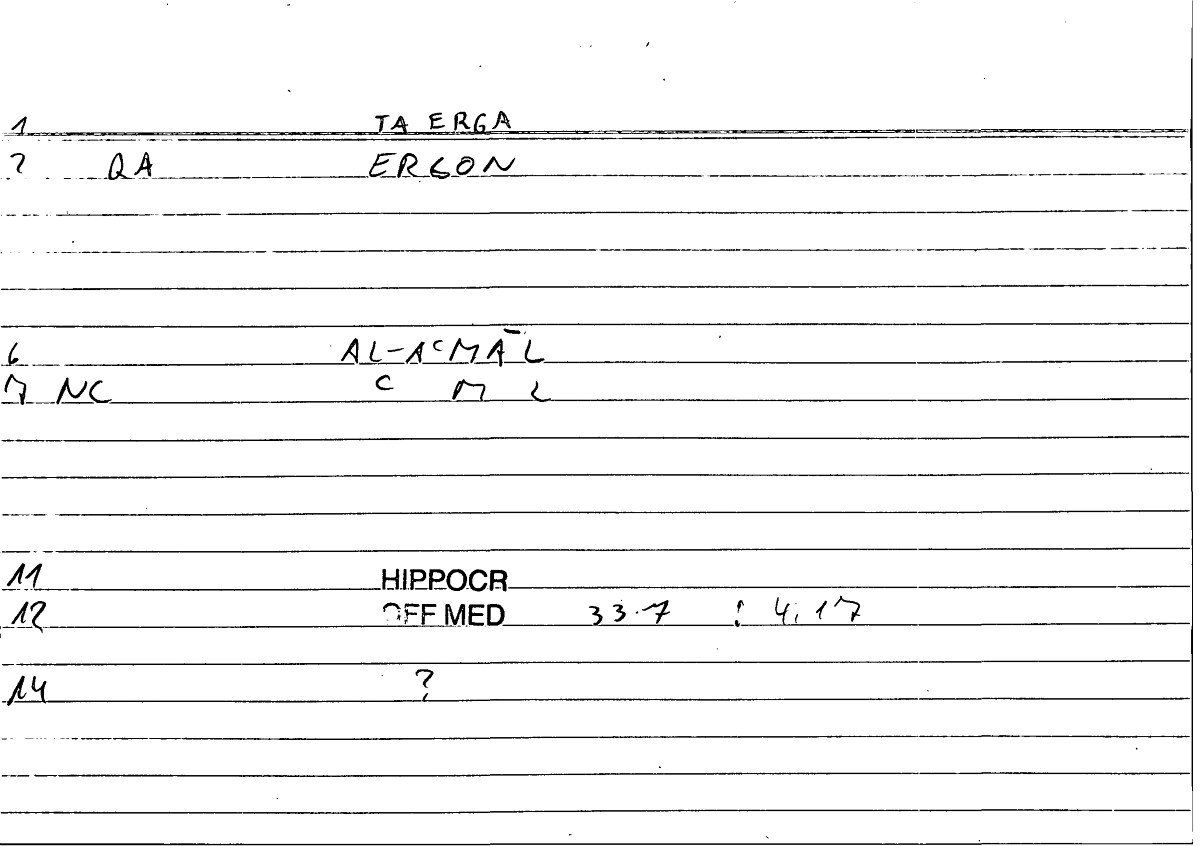 1 TA ERGA
2 QA ERGON
6 AL-AʿMĀL
7 NC ʿ M L
11 HIPPOCR
12 OFF MED 33.7 : 4,17
14 ?